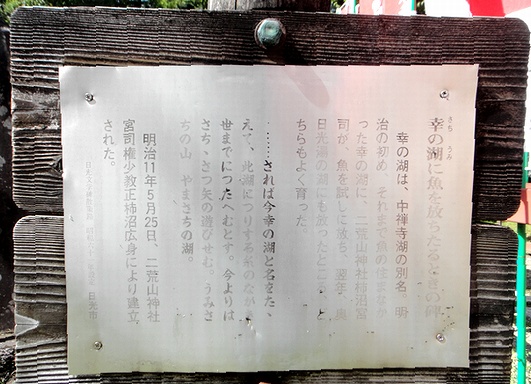 さち うみ
幸の湖に魚を放ちたるときの碑
幸の湖は、中禅寺湖の別名。明
治の初め、それまで魚の住まなか
った幸の湖に、二荒山神社柿沼宮
司が、魚を試しに放ち、翌年、奥
日光の湖にも放ったところ、ど
ちらもよく育った。
……されは今幸の湖と名をたゝ
えて、此湖につりする糸のなが
世までにつたへむとす。今よりは
さち、さつ矢の遊びせむ。うみさ
ちの山 やまさちの湖。
明治11年5月25日、二荒山神社
宮司権少教正柿沼広身により建立
された。
日光市